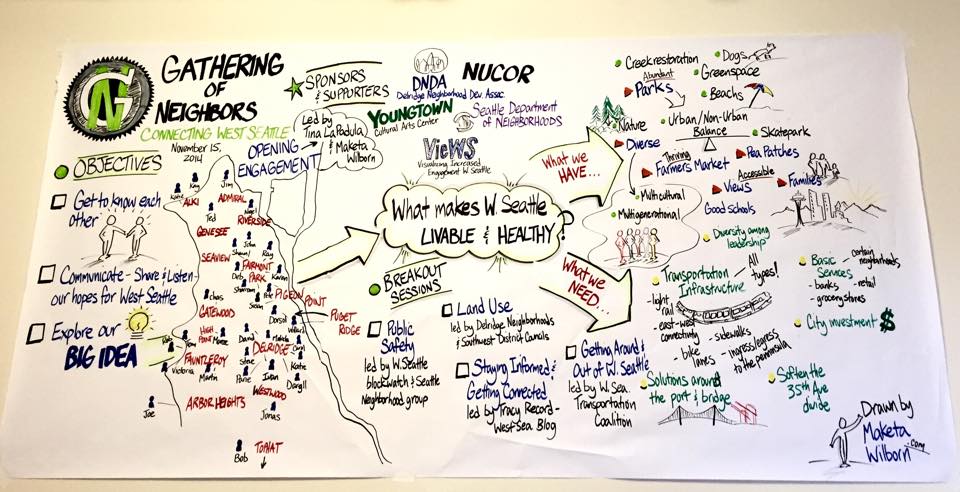 GN
GATHERING
OF
NEIGHBORS
CONNECTING WEST SEATTLE
November 15,
2014
OBJECTIVES
Get to know each
other
Communicate - Share & Listen -
our hopes for West Seattle
Explore our
BIG IDEA
OPENING
ENGAGEMENT
Led by
Tina LaPadula
& Maketa
Wilborn
Kay
Jim
ALKI
ADMIRAL
Ted
Nigel
RIVERSIDE
GENESEE
John
Shawn
Ray
SEAVIEW
FAIRMONT
PARK
Deb
Karen
Sharonn
Pete
Susan
PIGEON POINT
Chas
GATEWOOD
Dorsol
PUGET
RIDGE
HIGH
POINT
David
DELRIDGE
Tom
Steve
Kate
FAUNTLEROY
Victoria
Martin
Joan
Dargll
WESTWOOD
ARBOR HEIGHTS
Joe
Jonas
TOPHAT
Bob
SPONSORS
& SUPPORTERS
DNDA
Delridge Neighborhood Dev. Assoc.
NUCOR
YOUNGTOWN
Cultural Arts Center
Seattle Department
of NEIGHBORHOODS
VieWS
Visualizing Increased
Engagement W. Seattle
What makes W. Seattle
LIVABLE & HEALTHY?
BREAKOUT
SESSIONS
Public
Safety
led by W. Seattle
blockwatch & Seattle
Neighborhood group
Land Use
led by Delridge Neighborhoods
& Southwest District Councils
Staying Informed &
Getting Connected
led by Tracy Record -
West Sea Blog
Getting Around &
Out of W. Seattle
led by W. Sea.
Transportation
Coalition
What we
HAVE...
Creek restoration
Dogs
Abundant
Parks
Greenspace
Beachs
Nature
Urban/Non-Urban
Balance
Skatepark
Diverse
Thriving
Farmers Market
Pea Patches
Multicultural
Multigenerational
Accessible
Views
Families
Good schools
What we
NEED...
Diversity among
leadership
Transportation
Infrastructure
All
types!
- light
rail
- east-west
connectivity
- bike
lanes
- sidewalks
- ingress/egress
to the peninsula
Solutions around
the port & bridge
Basic
Services
certain
neighborhoods
- banks
- retail
- grocery stores
City investment $
Soften the
35th Ave
divide
Drawn by
Maketa
Wilborn
.com